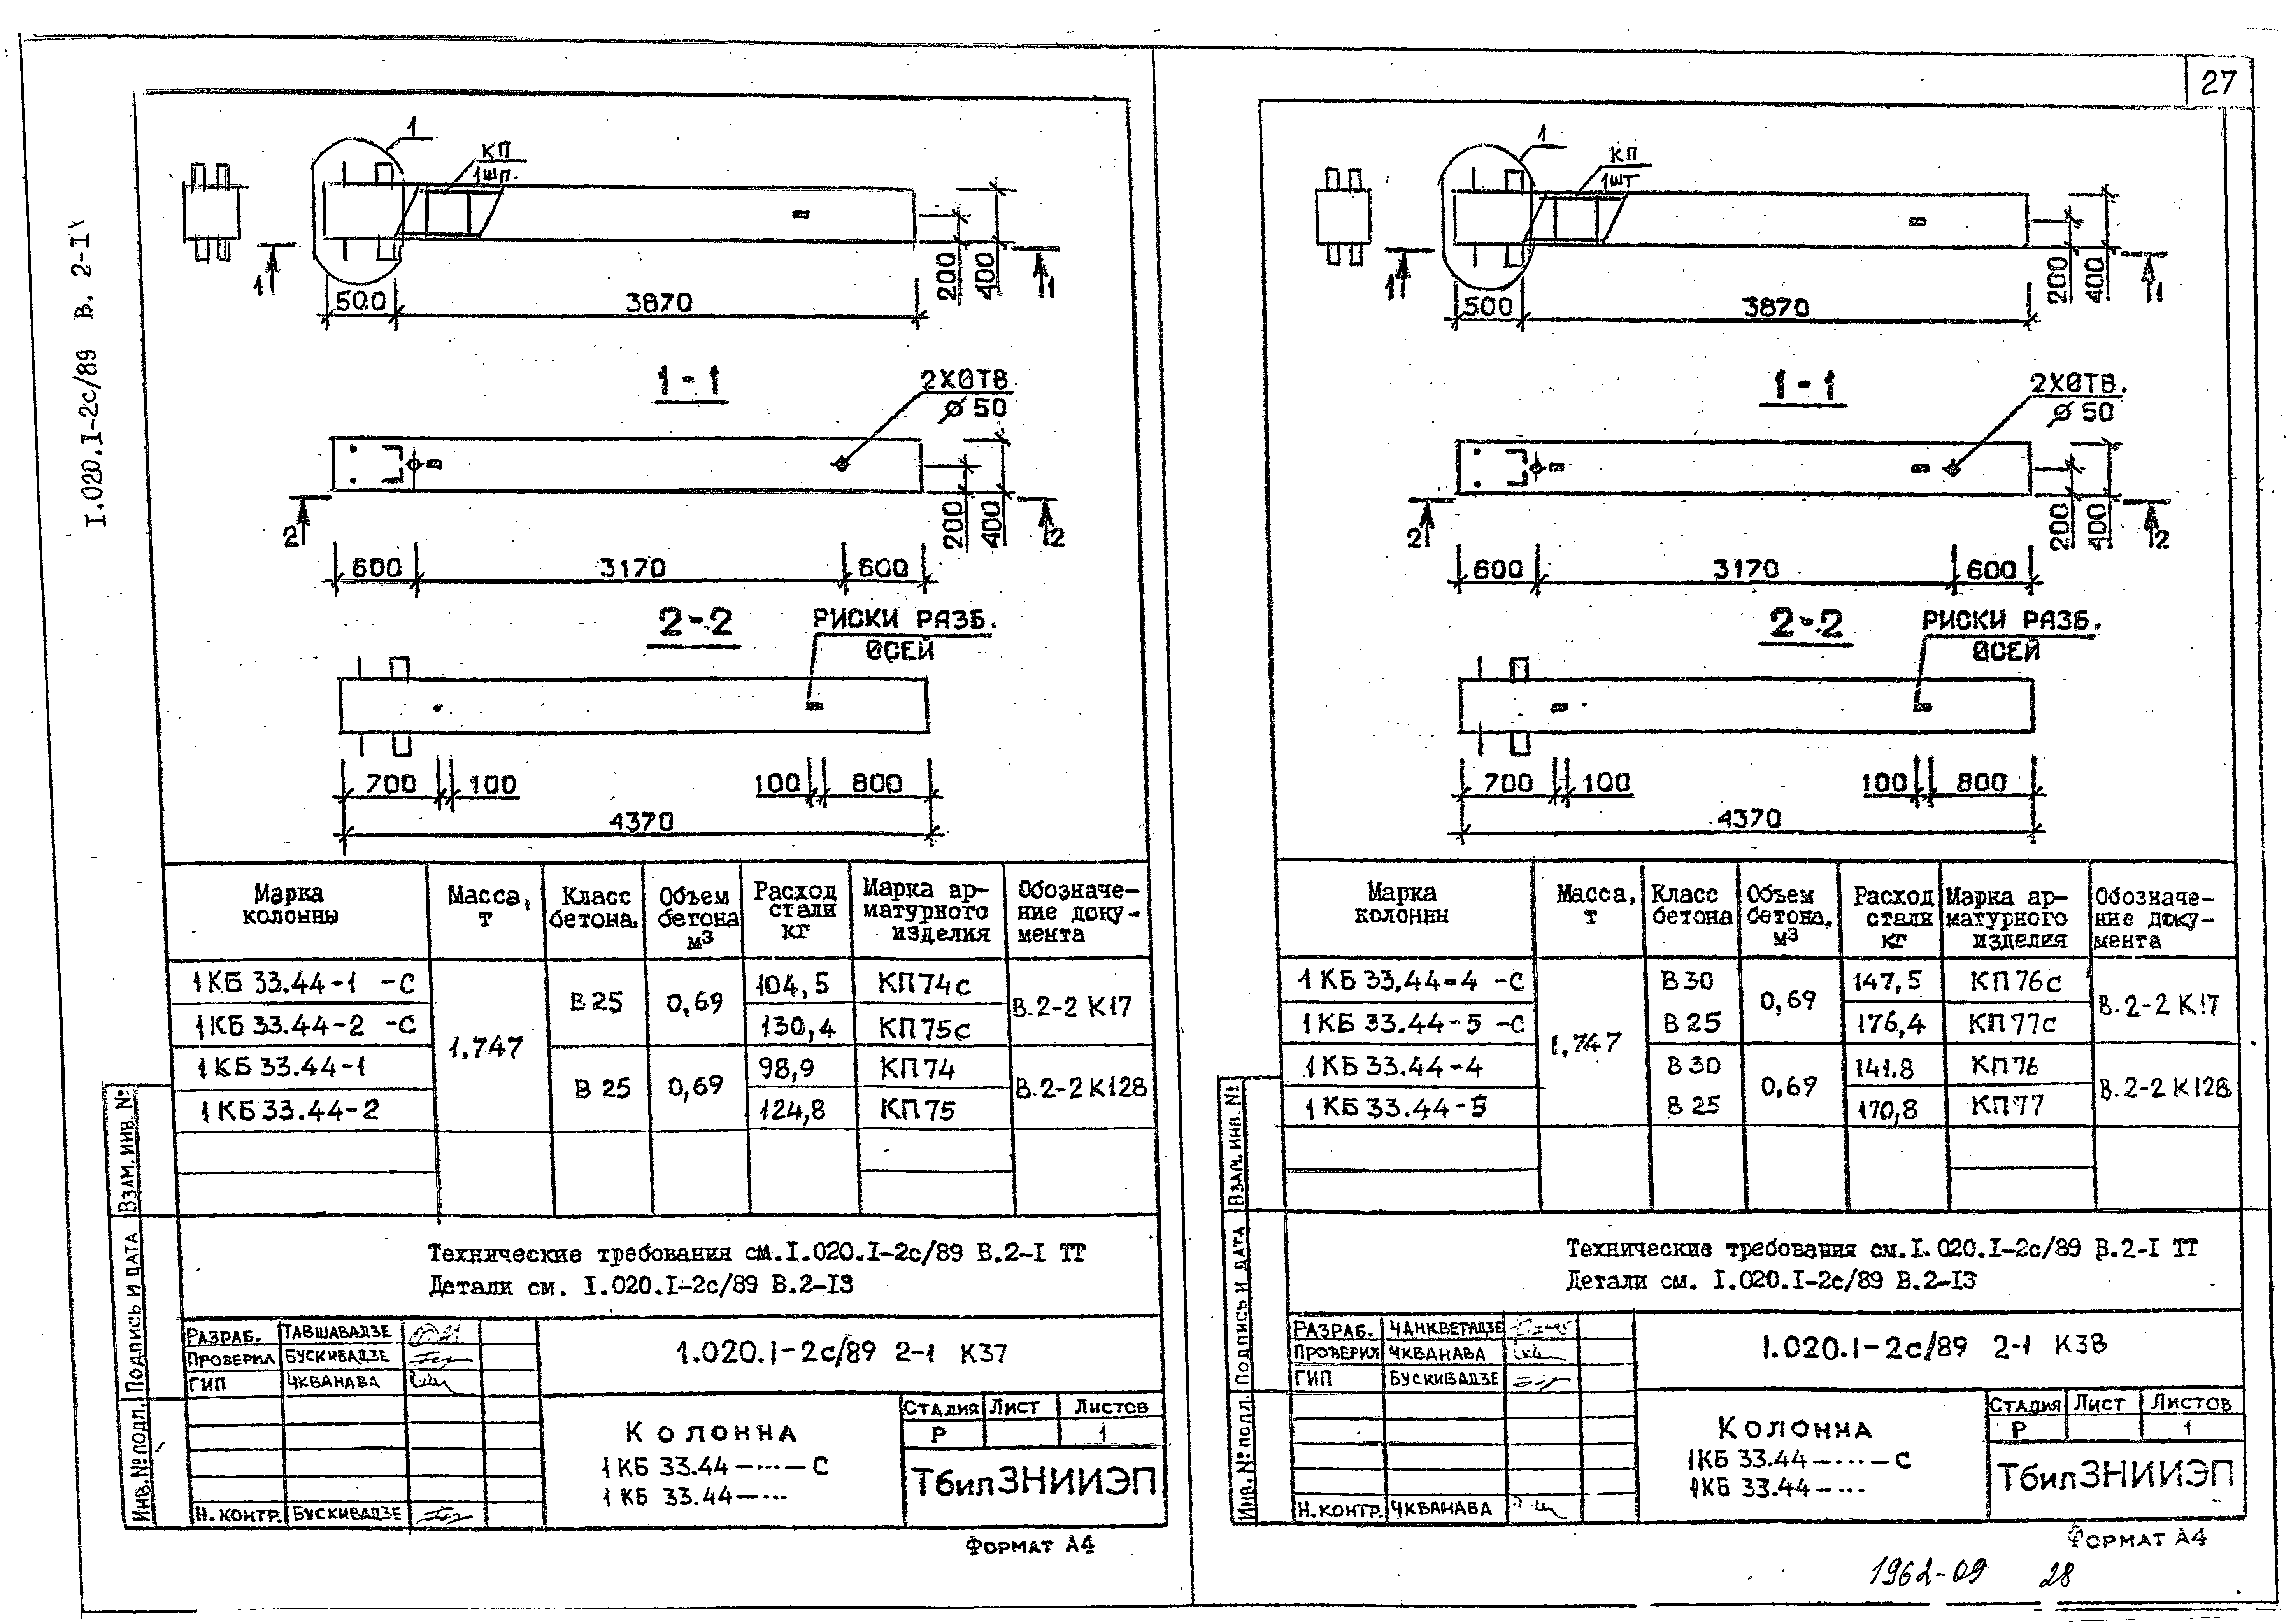 27
1.020.1-2с/89 В. 2-1
1
КП
1шт.
1
1
500
3870
200
400
1-1
2ХОТВ.
⌀ 50
2
2
600
3170
600
200
400
2-2
РИСКИ РАЗБ.
ОСЕЙ
700
100
100
800
4370
Марка колонны | Масса, т | Класс бетона. | Объем бетона м3 | Расход стали кг | Марка ар-матурного изделия | Обозначе-ние доку-мента
1КБ 33.44-1 -С | 1,747 | В 25 | 0,69 | 104,5 | КП74с | В.2-2 К17
1КБ 33.44-2 -С | 130,4 | КП75с
1КБ 33.44-1 | В 25 | 0,69 | 98,9 | КП74 | В.2-2 К128
1КБ 33.44-2 | 124,8 | КП75
Технические требования см.I.020.I-2с/89 В.2-I ТТ
Детали см. I.020.I-2с/89 В.2-I3
Взам. инв. №
Подпись и дата
Инв.№ подл.
Разраб. Тавшавадзе
Проверил Бускивадзе
ГИП Чкванава
Н. контр. Бускивадзе
1.020.1-2с/89 2-1 К37
Колонна
1КБ 33.44-····-С
1 КБ 33.44-···
Стадия Лист Листов
Р 1
ТбилЗНИИЭП
Формат А4
1
КП
1шт
1
1
500
3870
200
400
1-1
2ХОТВ.
⌀ 50
2
2
600
3170
600
200
400
2-2
РИСКИ РАЗБ.
ОСЕЙ
700
100
100
800
4370
Марка колонны | Масса, т | Класс бетона | Объем бетона, м3 | Расход стали кг | Марка ар-матурного изделия | Обозначе-ние доку-мента
1КБ 33.44-4 -С | 1,747 | В 30 | 0,69 | 147,5 | КП76с | В.2-2 К17
1КБ 33.44-5 -С | В 25 | 176,4 | КП77с
1КБ 33.44-4 | В 30 | 0,69 | 141.8 | КП76 | В.2-2 К128
1КБ 33.44-5 | В 25 | 170,8 | КП77
Технические требования см.I.020.I-2с/89 В.2-I ТТ
Детали см. I.020.I-2с/89 В.2-I3
Взам. инв. №
Подпись и дата
Инв.№ подл.
Разраб. Чанкветадзе
Проверил Чкванава
ГИП Бускивадзе
Н. контр. Чкванава
1.020.1-2с/89 2-1 К38
Колонна
1КБ 33.44-····-С
1КБ 33.44-···
Стадия Лист Листов
Р 1
ТбилЗНИИЭП
Формат А4
1962-09 28